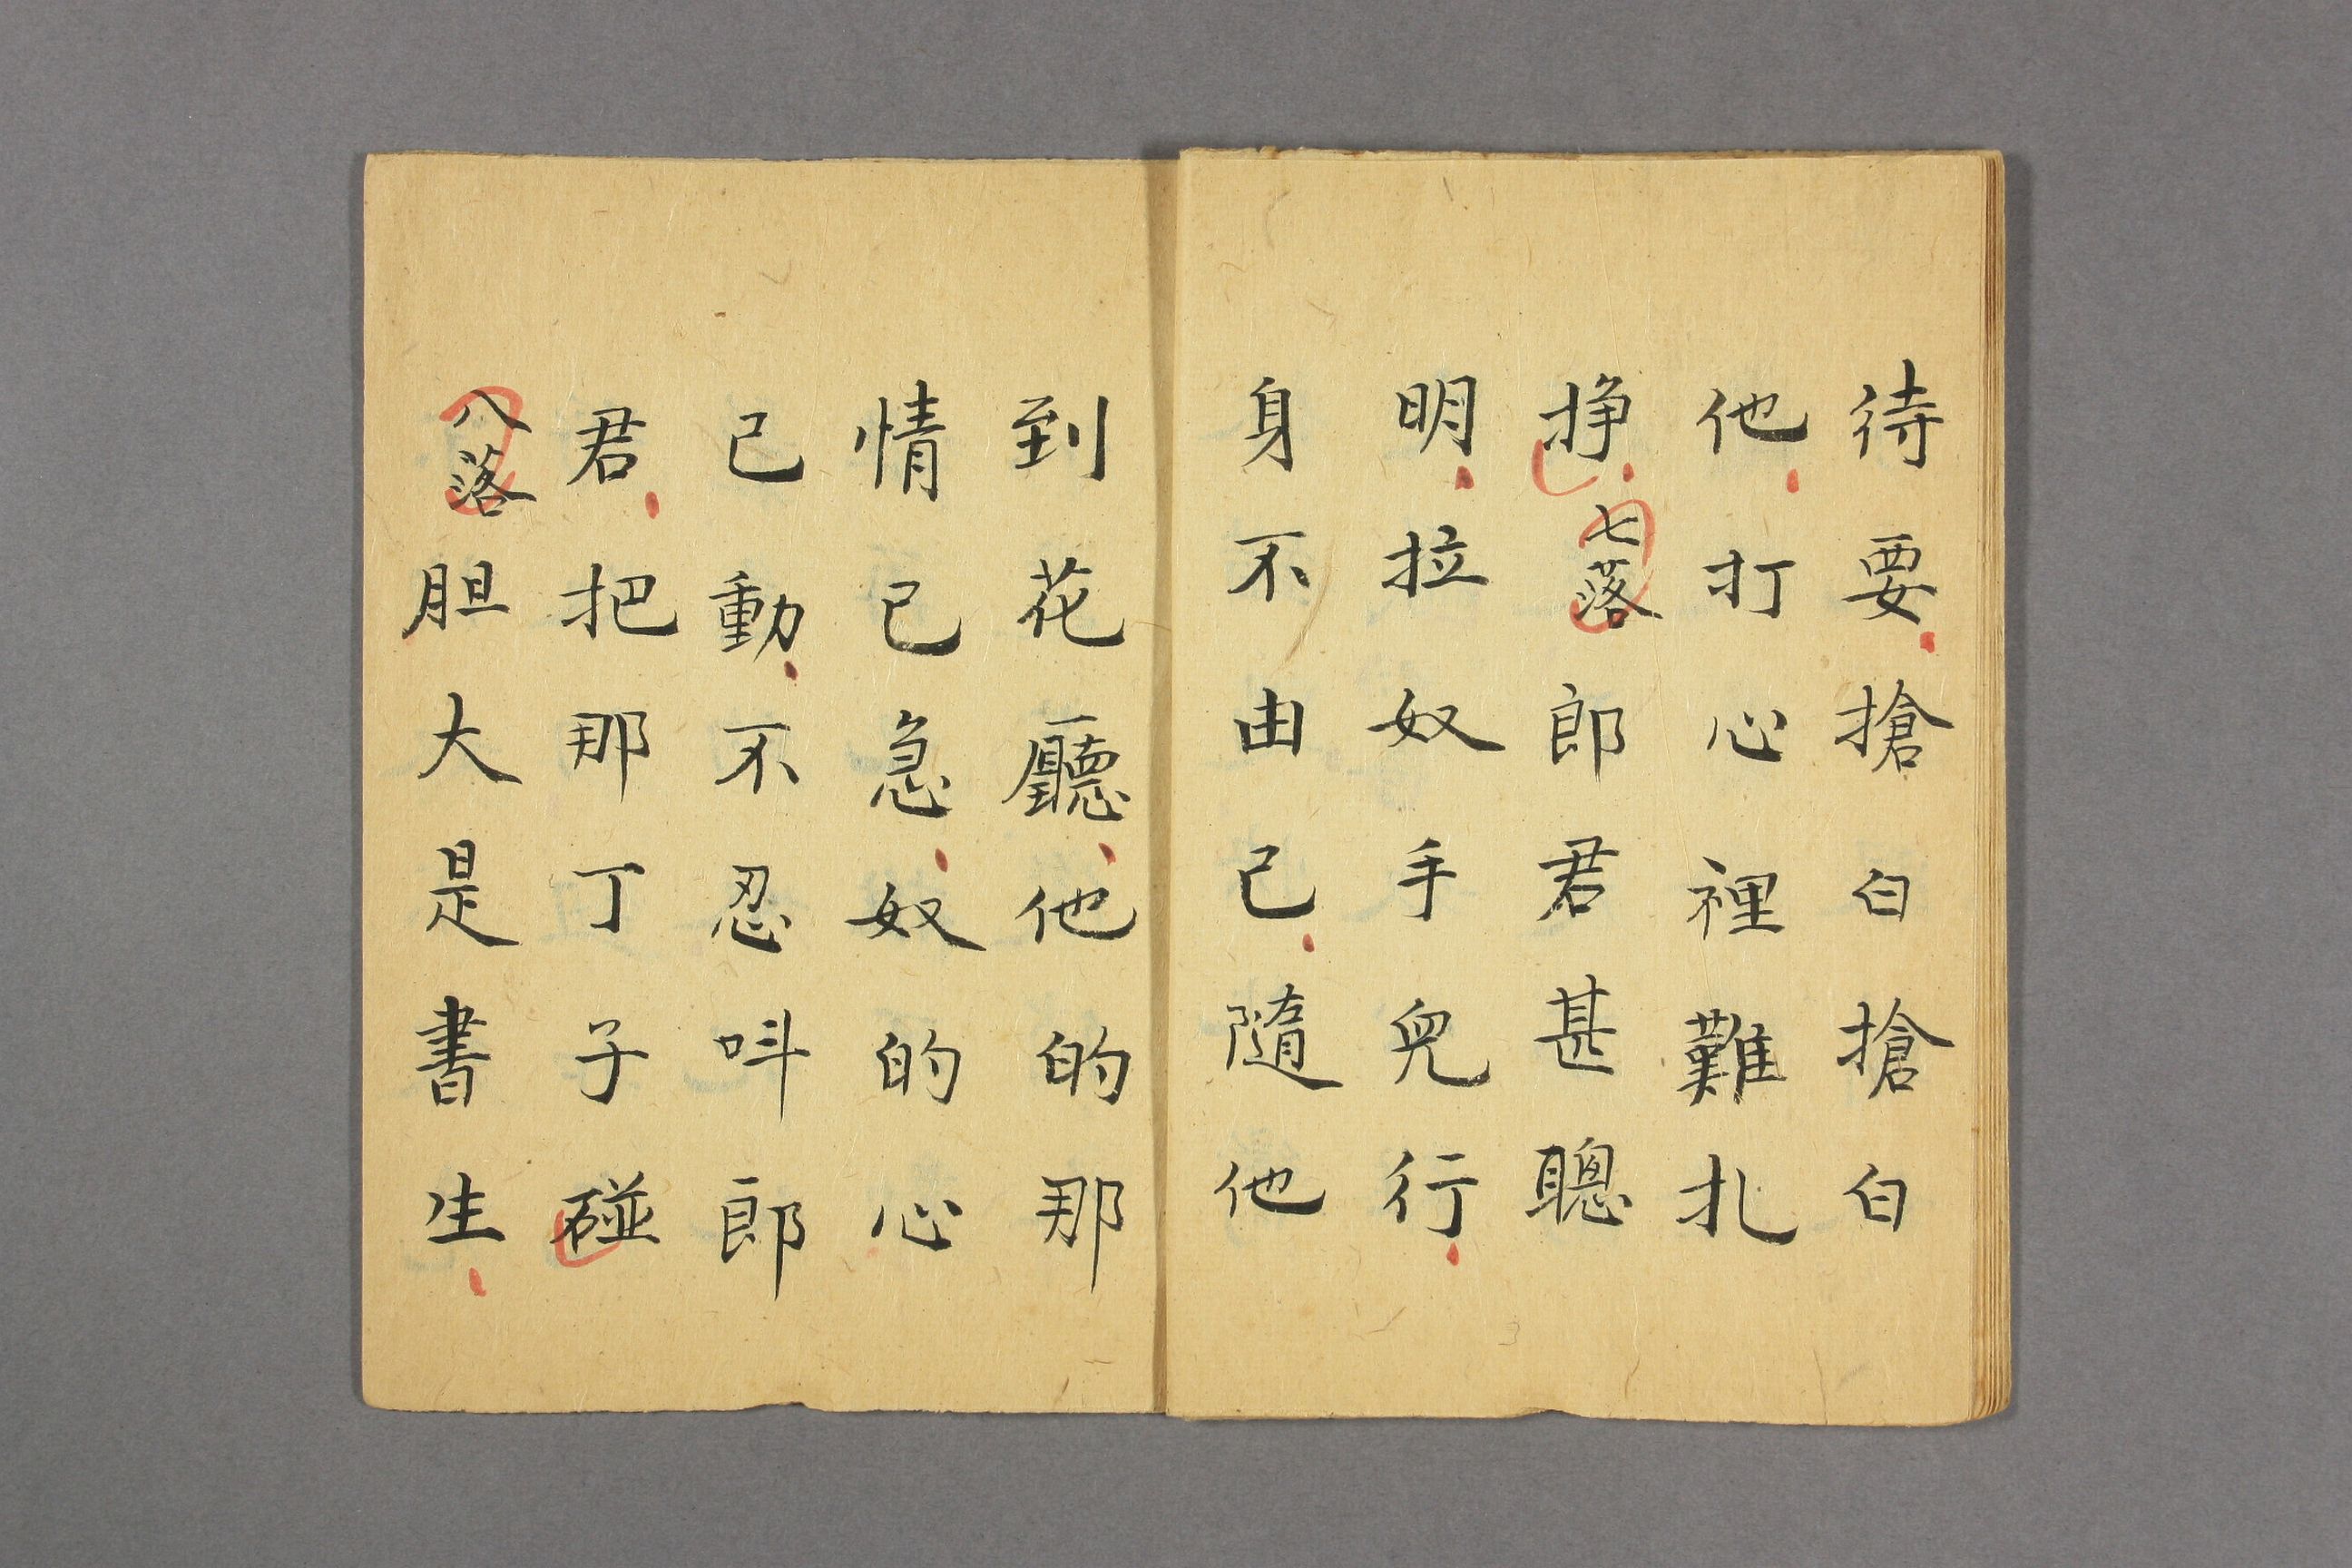 待要搶白搶白
他打心裡難扎
掙七落郎君甚聰
明拉奴手兒行
身不由己隨他
到花廳他的那
情已急奴的心
已動不忍呌郎
君把那丁子碰
八落胆大是書生